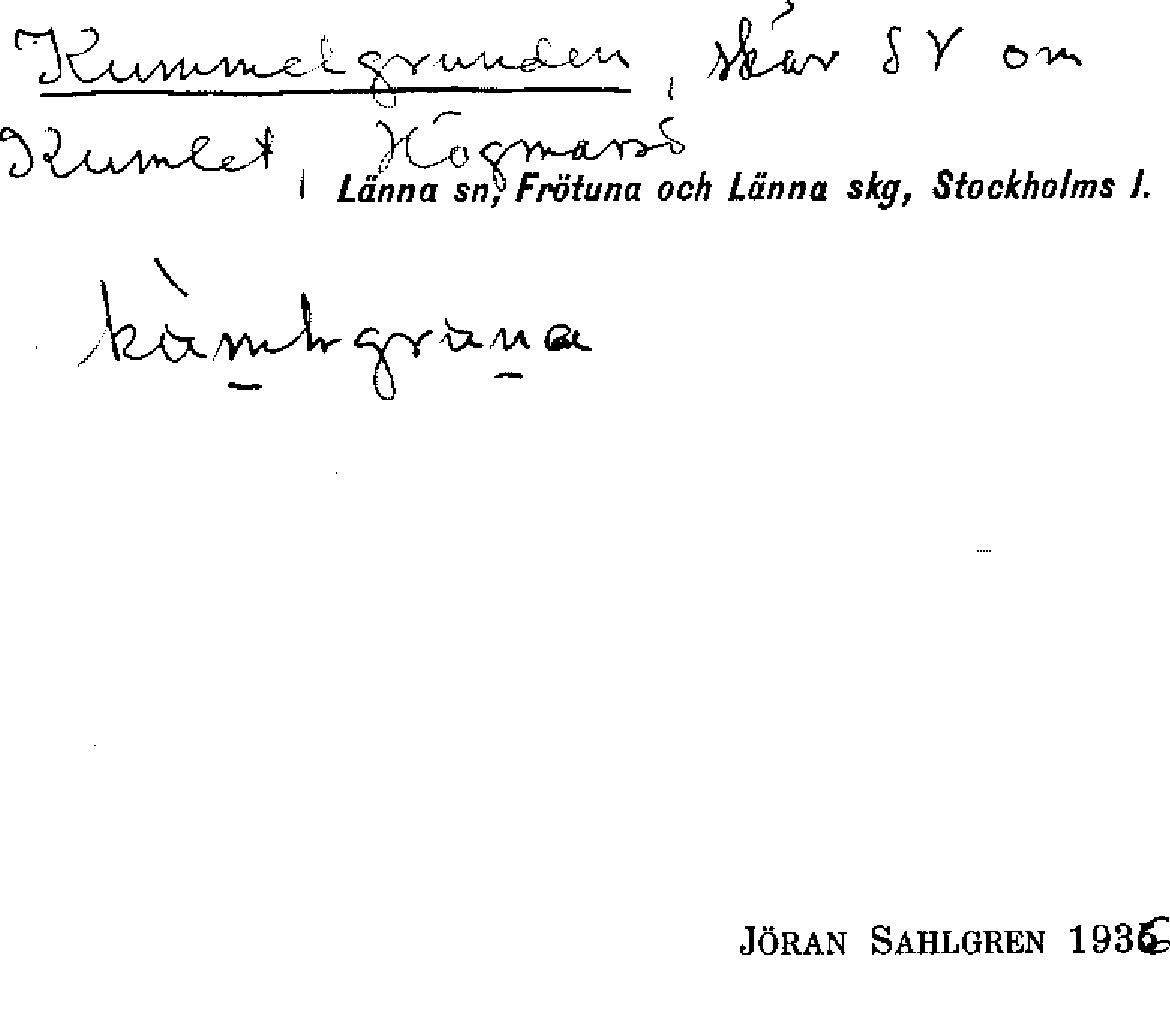 Kummelgrunden, skär SV om
Kumlet, Högmarsö
Länna sn, Frötuna och Länna skg, Stockholms l.
JÖRAN SAHLGREN 1936